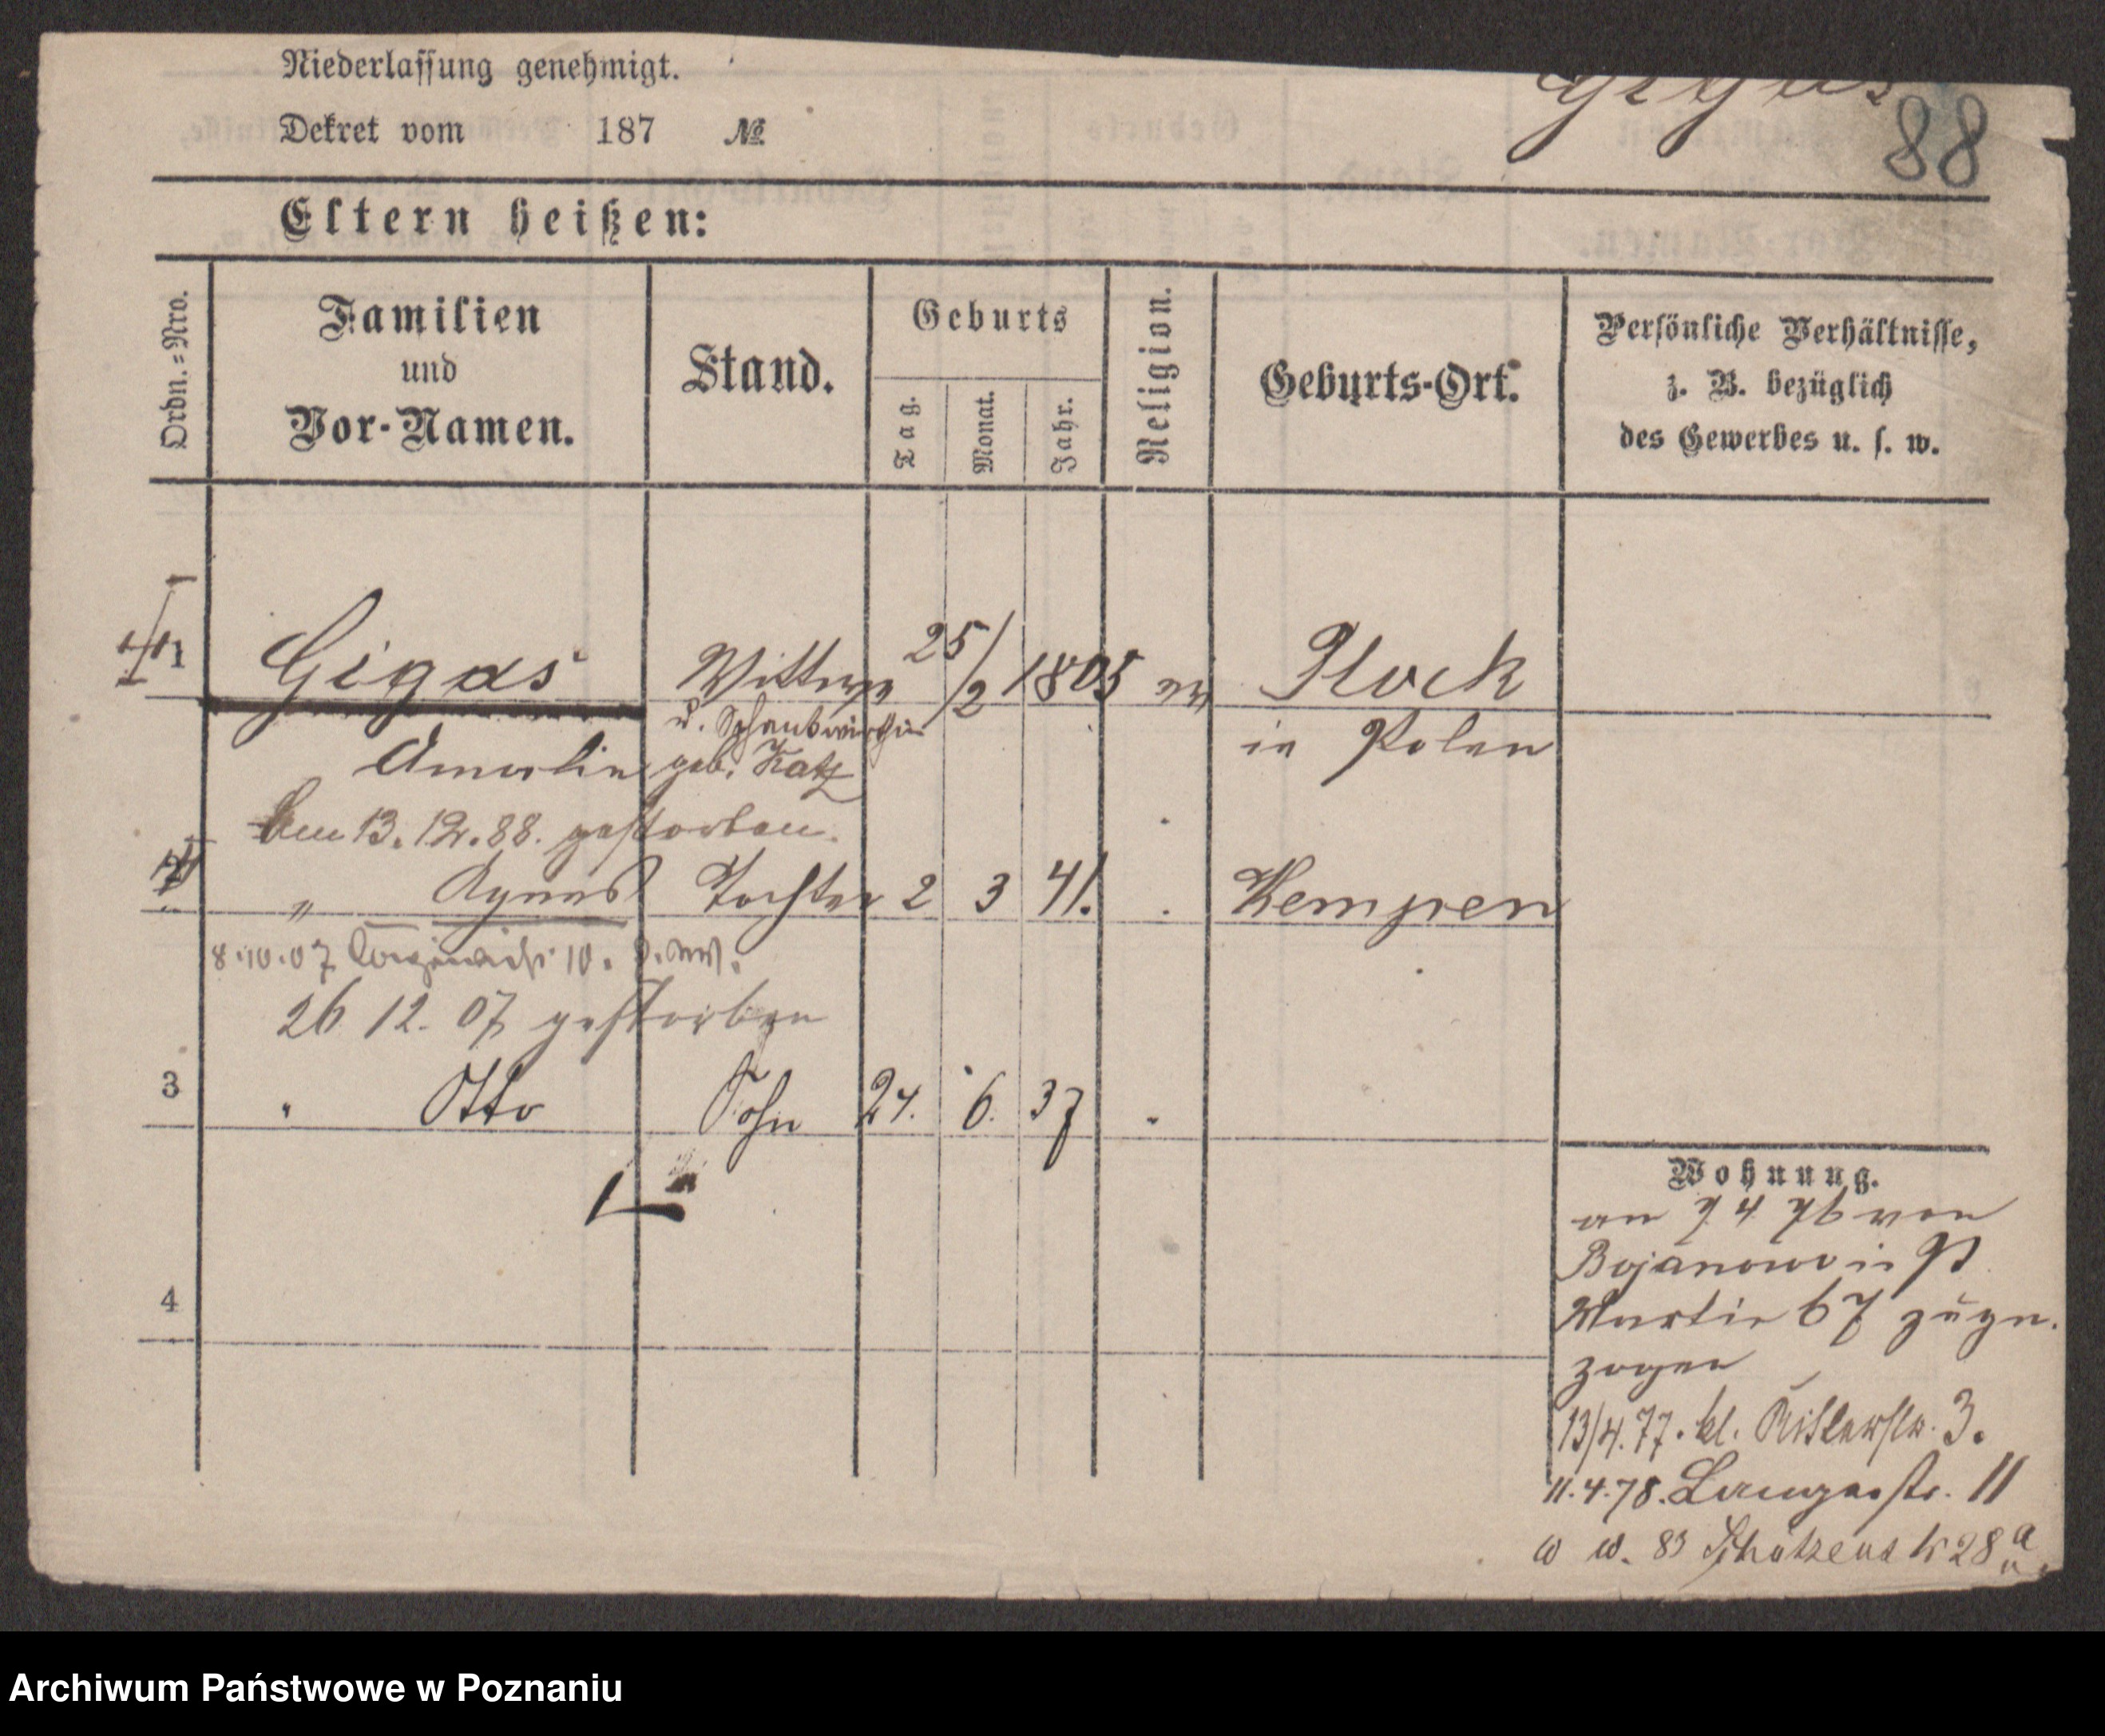 Niederlassung genehmigt.
Gigas
88
Dekret vom 187 №
Eltern heißen:
Ordn.=Nro.
Familien
und
Vor-Namen.
Stand.
Geburts
Tag.
Monat.
Jahr.
Religion.
Geburts-Ort.
Persönliche Verhältnisse,
z. B. bezüglich
des Gewerbes u. s. w.
1 Gigas Wittwe 25/2 1805 Plock
u. Schankwirthin
Amalie geb. Katz in Polen
am 13.12.88. gestorben.
2 " Agnes Tochter 2 3 41. Kempen
8.10.07 10.
26 12. 07 gestorben
3 " Otto Sohn 24. 6. 37
4
Wohnung.
am 7 4 76 von
Bojanowo in St
Martin 67 zuge.
zogen
13/4.77. kl. Ritterstr. 3.
11.4.78. Langestr. 11
83 Schützenstr 28 a
Archiwum Państwowe w Poznaniu